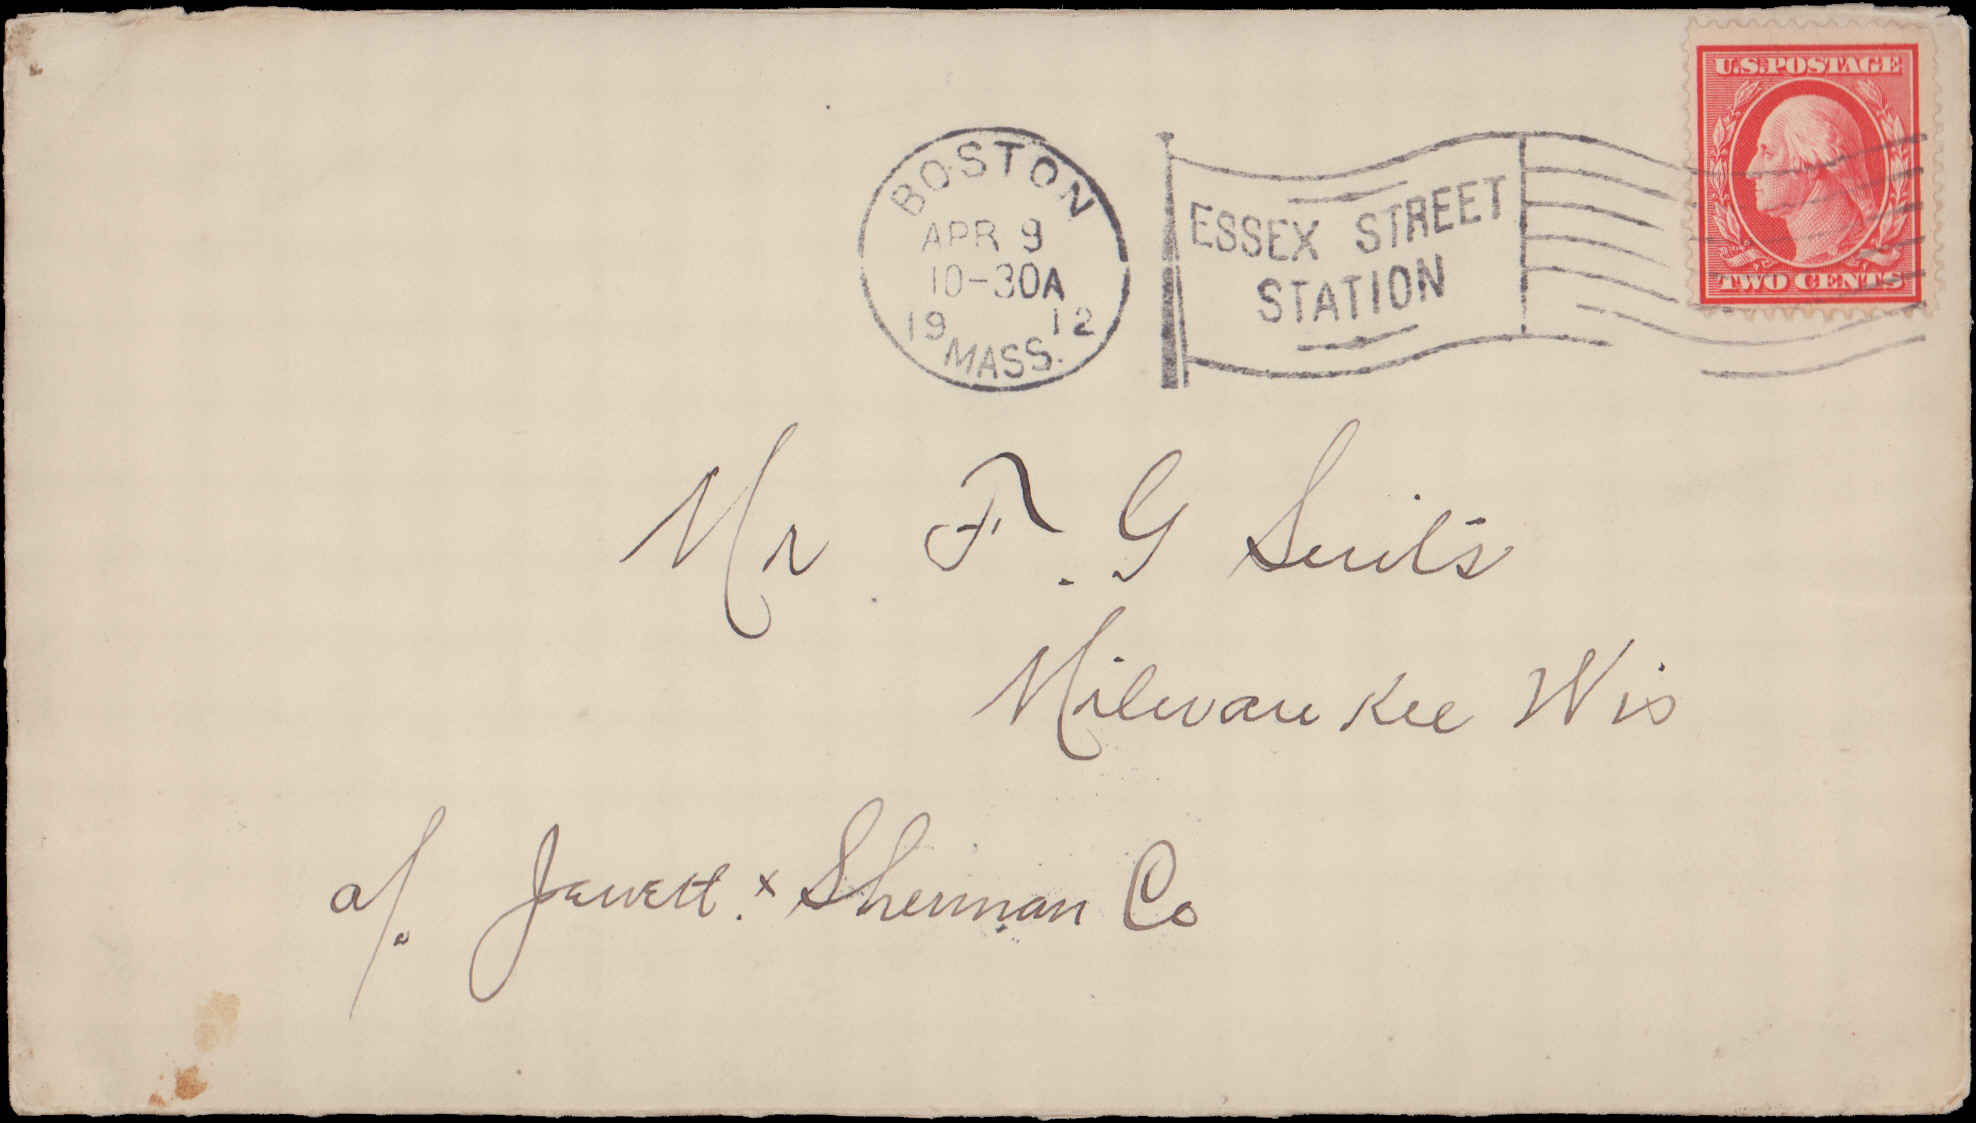 U.S. POSTAGE
TWO CENTS
BOSTON
APR 9
10-30A
19 12
MASS.
ESSEX STREET
STATION
Mr F. G Suits
Milwaukee Wis
Jewett & Sherman Co